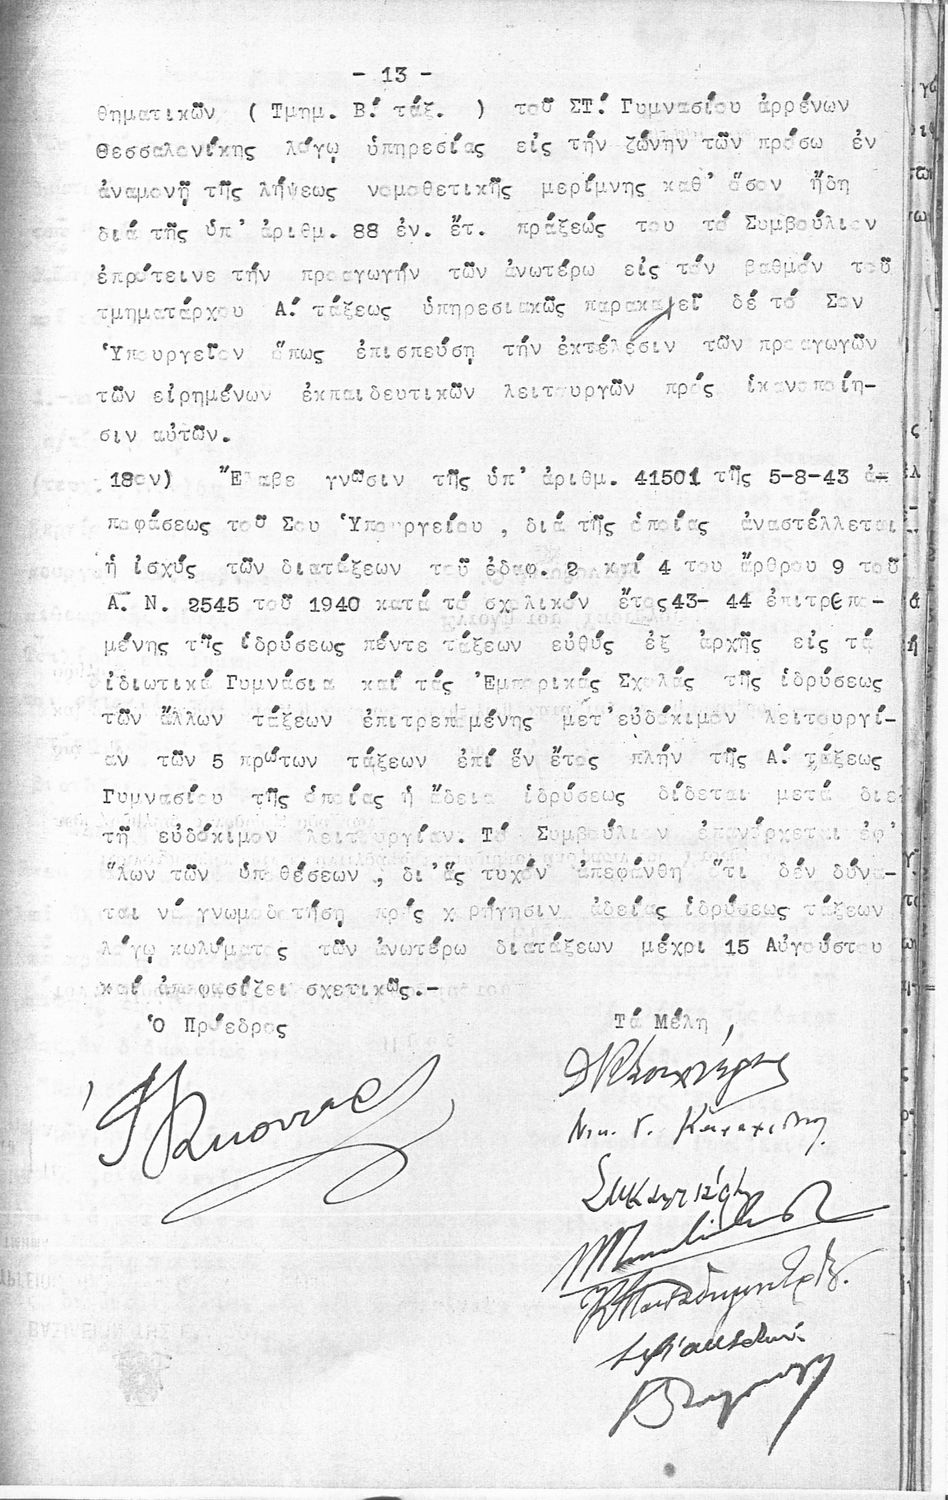 - 13 -
θηματικῶν ( Τμημ. Β΄ τάξ. ) τοῦ ΣΤ΄ Γυμνασίου ἀρρένων
Θεσσαλονίκης λόγῳ ὑπηρεσίας εἰς τήν ζώνην τῶν πρόσω ἐν
ἀναμονῇ τῆς λήψεως νομοθετικῆς μερίμνης καθ' ὅσον ἤδη
διά τῆς ὑπ' ἀριθμ. 88 ἐν. ἔτ. πράξεώς του τό Συμβούλιον
ἐπρότεινε τήν προαγωγήν τῶν ἀνωτέρω εἰς τόν βαθμόν τοῦ
τμηματάρχου Α΄ τάξεως ὑπηρεσιακῶς παρακαλεῖ δέ τό Σον
Ὑπουργεῖον ὅπως ἐπισπεύσῃ τήν ἐκτέλεσιν τῶν προαγωγῶν
τῶν εἰρημένων ἐκπαιδευτικῶν λειτουργῶν πρός ἱκανοποίη-
σιν αὐτῶν.
18ον) Ἔλαβε γνῶσιν τῆς ὑπ' ἀριθμ. 41501 τῆς 5-8-43 ἀ-
ποφάσεως τοῦ Σου Ὑπουργείου , διά τῆς ὁποίας ἀναστέλλεται
ἡ ἰσχύς τῶν διατάξεων τοῦ ἐδαφ. 2 καί 4 του ἄρθρου 9 τοῦ
Α. Ν. 2545 τοῦ 1940 κατά τό σχολικόν ἔτος 43- 44 ἐπιτρεπο-
μένης τῆς ἱδρύσεως πέντε τάξεων εὐθύς ἐξ ἀρχῆς εἰς τά
ἰδιωτικά Γυμνάσια καί τάς Ἐμπορικάς Σχολάς τῆς ἱδρύσεως
τῶν ἄλλων τάξεων ἐπιτρεπομένης μετ' εὐδόκιμον λειτουργί-
αν τῶν 5 πρώτων τάξεων ἐπί ἕν ἔτος πλήν τῆς Α΄ τάξεως
Γυμνασίου τῆς ὁποίας ἡ ἄδεια ἱδρύσεως δίδεται μετά διε-
τῆ εὐδόκιμον λειτουργίαν. Τό Συμβούλιον ἐπανέρχεται ἐφ'
ὅλων τῶν ὑποθέσεων , δι' ἅς τυχόν ἀπεφάνθη ὅτι δέν δύνα-
ται νά γνωμοδοτήσῃ πρός χορήγησιν ἀδείας ἱδρύσεως τάξεων
λόγῳ κωλύματος τῶν ἀνωτέρω διατάξεων μέχρι 15 Αὐγούστου
καί ἀποφασίζει σχετικῶς.-
Ὁ Πρόεδρος Τά Μέλη